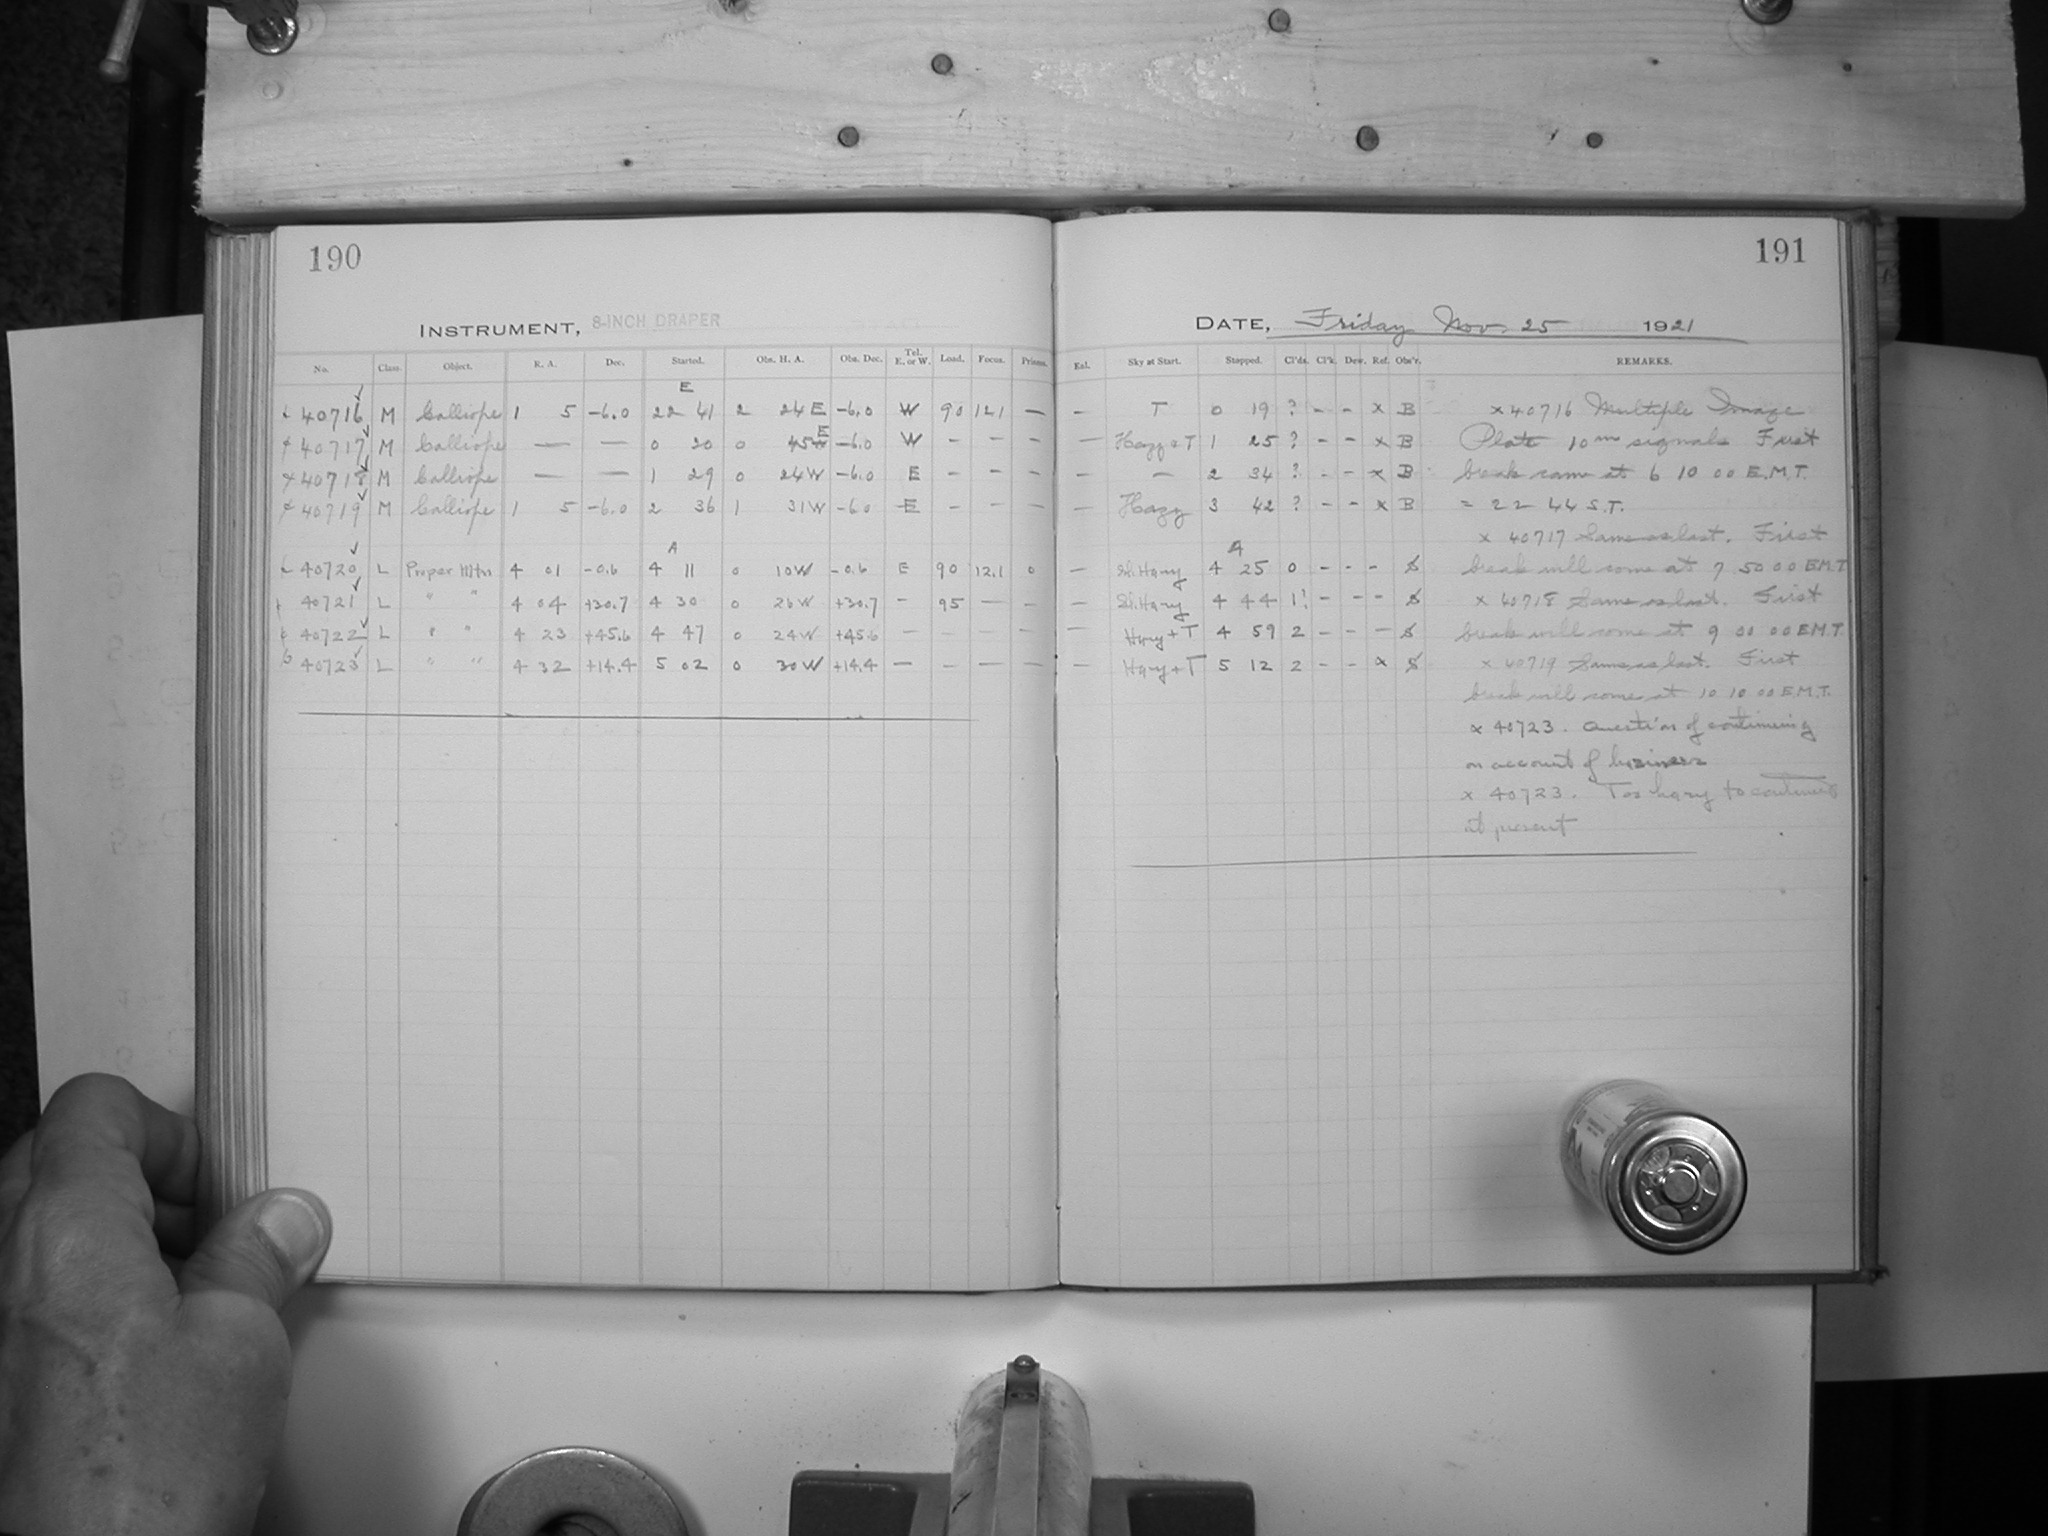 190
INSTRUMENT, 8-INCH DRAPER
No. Class. Object. R. A. Dec. Started. Obs. H. A. Obs. Dec. Tel. E. or W. Load. Focus. Prisms.
E
40716 M Calliope 1 5 -6.0 22 41 2 24 E -6.0 W 90 12.1 —
40717 M Calliope — — 0 20 0 45 E -6.0 W - - -
40718 M Calliope — — 1 29 0 24 W -6.0 E - - -
40719 M Calliope 1 5 -6.0 2 36 1 31 W -6.0 E - - -
A
40720 L Proper Mtn 4 01 -0.6 4 11 0 10 W -0.6 E 90 12.1 0
40721 L " " 4 04 +30.7 4 30 0 26 W +30.7 - 95 — —
40722 L " " 4 23 +45.6 4 47 0 24 W +45.6 — — — —
40723 L " " 4 32 +14.4 5 02 0 30 W +14.4 — — — —
191
DATE, Friday Nov. 25 1921
Eal. Sky at Start. Stopped. Cl'ds. Cl'k. Dew. Ref. Obs'r. REMARKS.
— T 0 19 ? - - x B x 40716 Multiple Image
— Hazy + T 1 25 ? - - x B Plate 10m signals First
— — 2 34 ? - - x B break came at 6 10 00 E.M.T.
— Hazy 3 42 ? - - x B = 22 44 S.T.
A
x 40717 Same as last. First
— Sl. Hazy 4 25 0 - - - S break will come at 7 50 00 E.M.T.
— Sl. Hazy 4 44 1? - - - S x 40718 Same as last. First
— Hazy + T 4 59 2 - - - S break will come at 9 00 00 E.M.T.
— Hazy + T 5 12 2 - - x S x 40719 Same as last. First
break will come at 10 10 00 E.M.T.
x 40723. Question of continuing
on account of haziness
x 40723. Too hazy to continue
at present